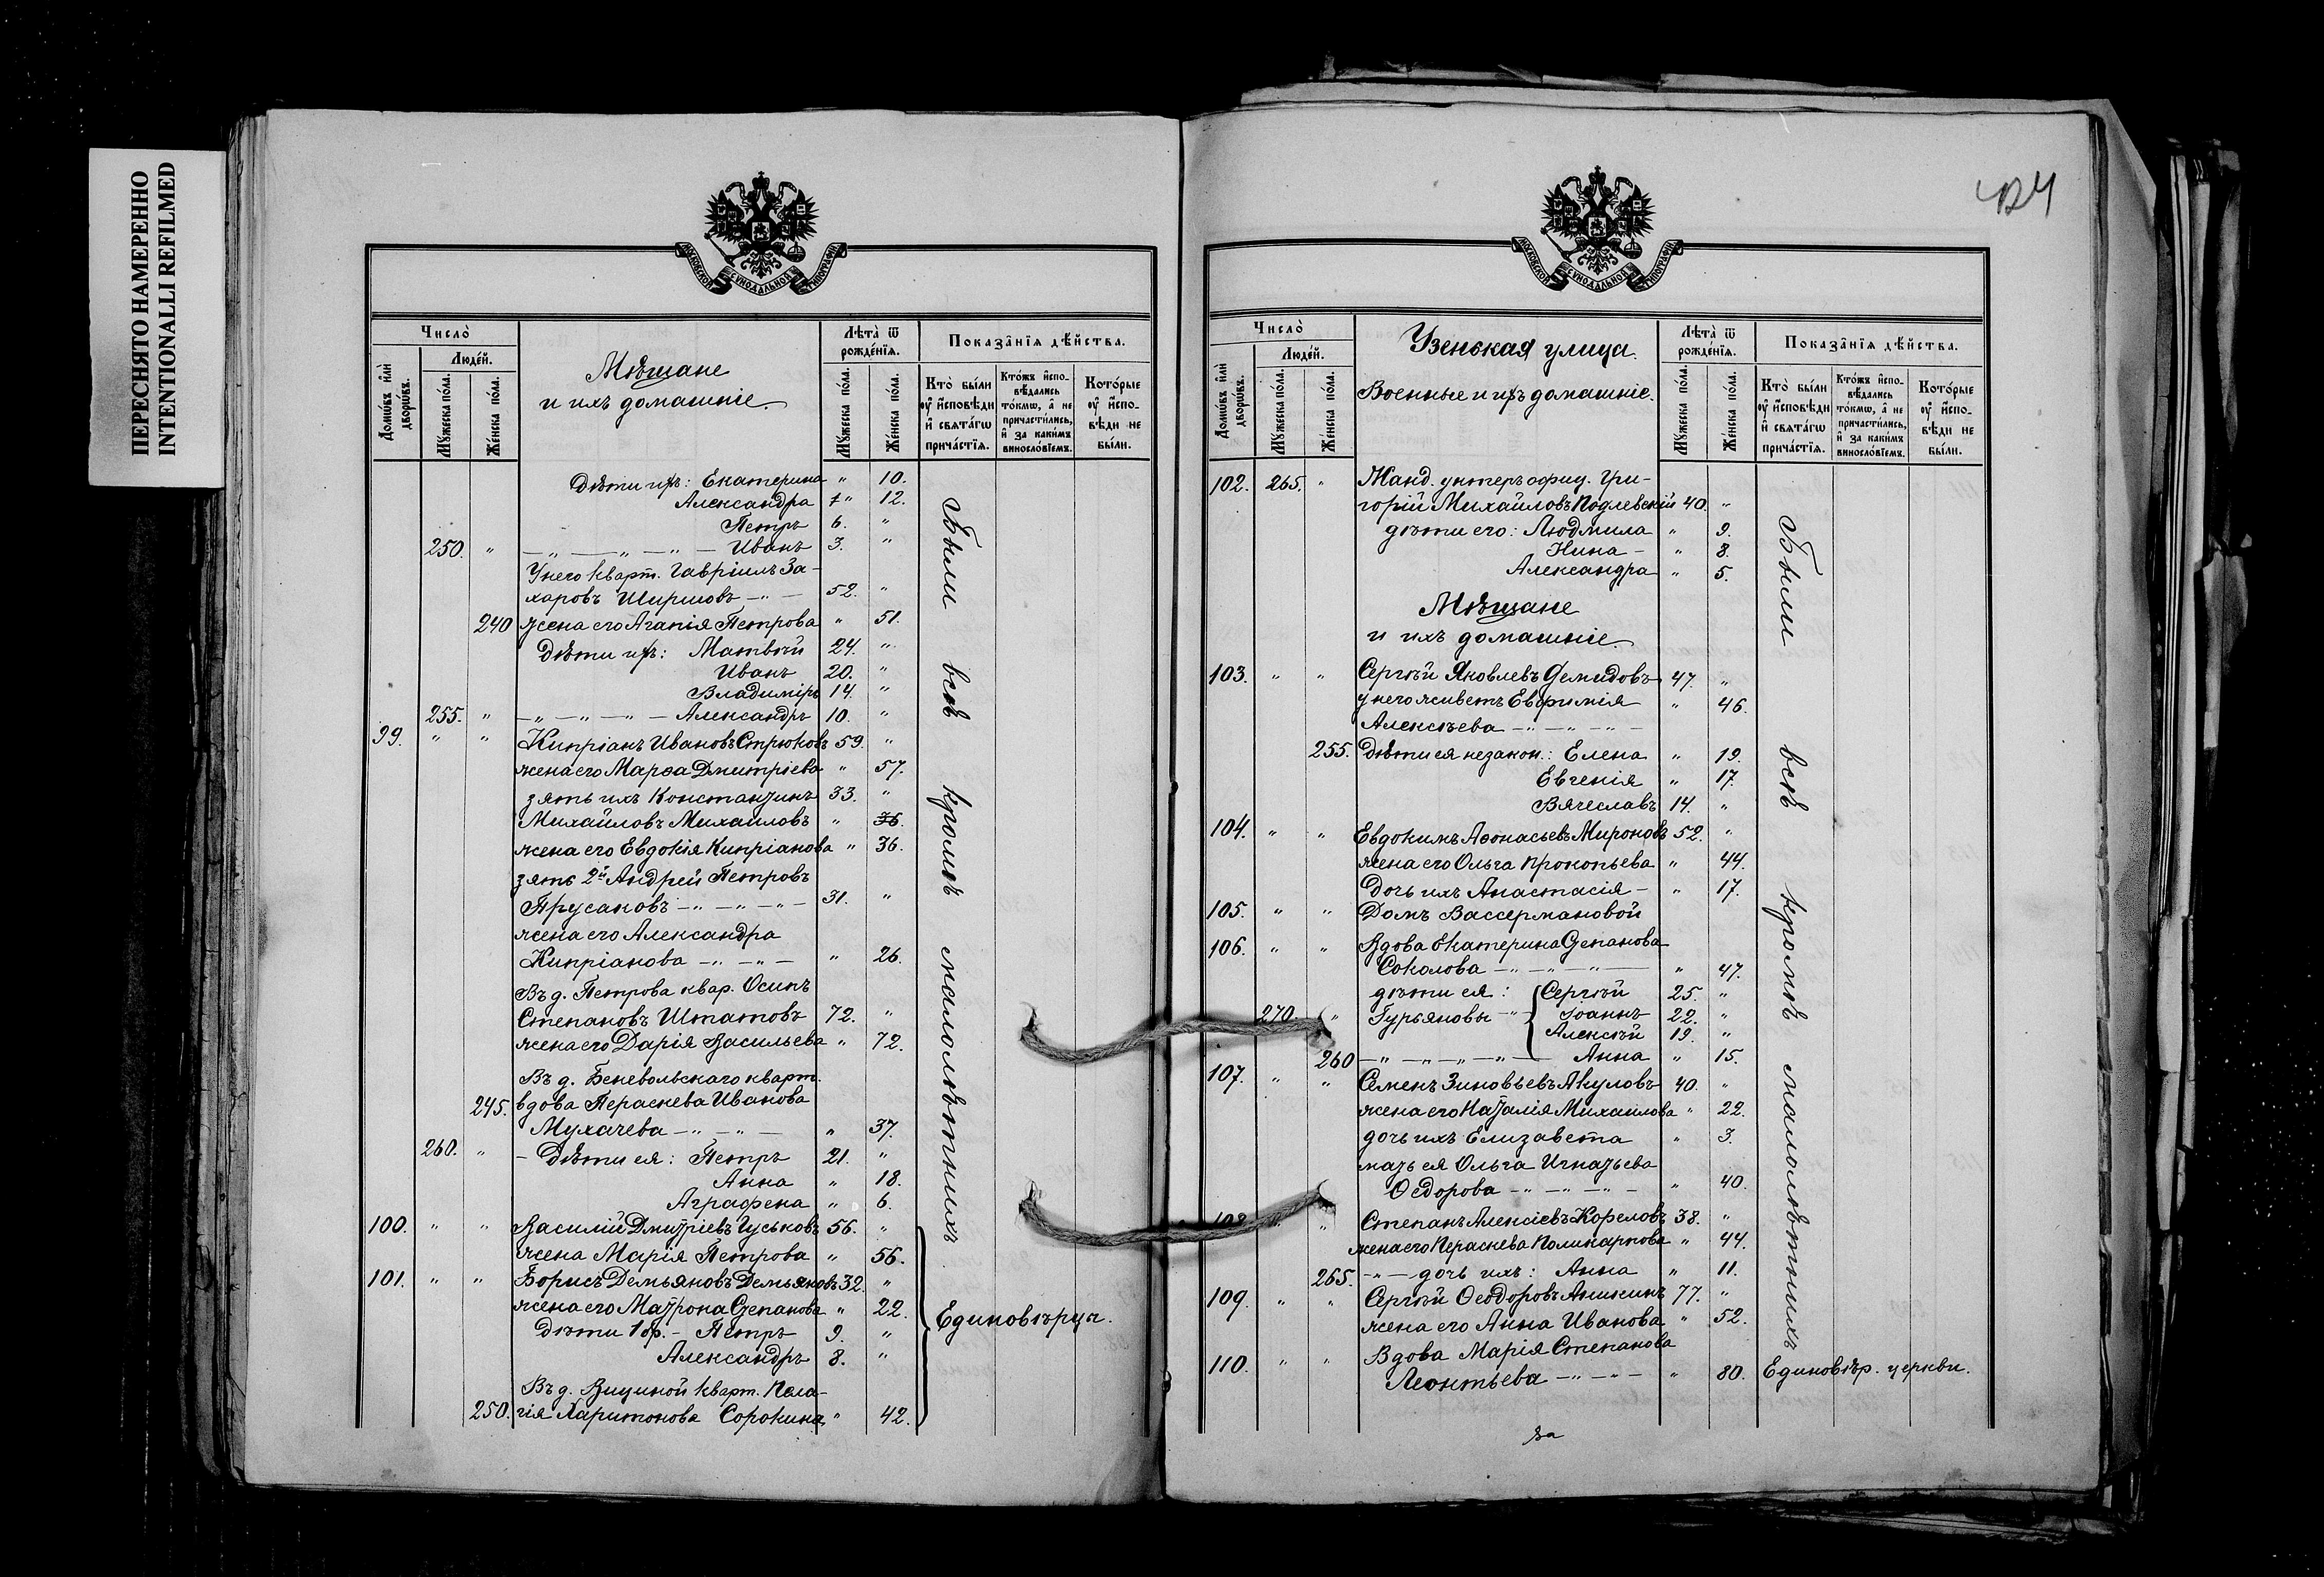 ПЕРЕСНЯТО НАМЕРЕННО
INTENTIONALLI REFILMED
МОСКОВСКОЙ СѴНОДАЛЬНОЙ ТИПОГРАФІИ
Число̀
Люде́й.
Домѡ́въ и҆лѝ дворѡ́въ.
Мꙋ́жеска по́ла.
Же́нска по́ла.
Мѣщане
и ихъ домашніе.
Лѣта̀ ѿ рожде́нїѧ.
Мꙋ́жеска по́ла.
Же́нска по́ла.
Показа̑нїѧ дѣ́йства.
Кто̀ бы́ли ᲂу҆ и҆сповѣ́ди и҆ свѧта́гѡ прича́стїѧ.
Кто́жъ и҆сповѣ́дались то́кмѡ, а҆ не причасти́лись, и҆ за каки́мъ винослѡ́вїемъ.
Кото́рые ᲂу҆ и҆сповѣ́ди не бы́ли.
Дѣти ихъ: Екатерина " 10.
Александра " 12.
Петръ 6. "
250. " — " — " — " — Иванъ 3. "
У него кварт. Гавріилъ За-
харовъ Ширшовъ — " — 52. "
240 жена его Агапія Петрова " 51.
Дѣти ихъ: Матвѣй 24. "
Иванъ 20. "
Владиміръ 14. "
255. " — " — " — " — Александръ 10. "
99. " " Кипріанъ Ивановъ Стрюковъ 59. "
жена его Марѳа Дмитріева " 57.
зять ихъ Константинъ 33. "
Михайловъ Михаиловъ " 36.
жена его Евдокія Кипріанова " 36.
зять 2й Андрей Петровъ
Прусаковъ — " — " — " — 31. "
жена его Александра
Кипріанова — " — " — " 26.
Въ д. Петрова квар. Осипъ
Степановъ Штатовъ 72. "
жена его Дарія Васильева " 72.
Въ д. Беневольскаго кварт.
245. вдова Параскева Иванова
Мухачева — " — " — " 37.
260. " — Дѣти ея: Петръ 21. "
Анна " 18.
Аграфена " 6.
100. " " Василій Дмитріевъ Гуськовъ 56. "
жена Марія Петрова " 56.
101. " " Борисъ Демьяновъ Демьяновъ 32. "
жена его Матрона Степанова " 22.
Дѣти 1 бр. — Петръ 9. "
Александръ 8. "
Въ д. Вициной кварт. Пела-
250. гія Харитонова Сорокина " 42.
Были всѣ кромѣ малолѣтнихъ
Единовѣрцы.
МОСКОВСКОЙ СѴНОДАЛЬНОЙ ТИПОГРАФІИ
Число̀
Люде́й.
Домѡ́въ и҆лѝ дворѡ́въ.
Мꙋ́жеска по́ла.
Же́нска по́ла.
Узенькая улица.
Военные и ихъ домашніе.
Лѣта̀ ѿ рожде́нїѧ.
Мꙋ́жеска по́ла.
Же́нска по́ла.
Показа̑нїѧ дѣ́йства.
Кто̀ бы́ли ᲂу҆ и҆сповѣ́ди и҆ свѧта́гѡ прича́стїѧ.
Кто́жъ и҆сповѣ́дались то́кмѡ, а҆ не причасти́лись, и҆ за каки́мъ винослѡ́вїемъ.
Кото́рые ᲂу҆ и҆сповѣ́ди не бы́ли.
102. 265. " Жанд. унтеръ офиц. Гри-
горій Михайловъ Подлевскій 40. "
дѣти его: Людмила " 9.
Нина — " 8.
Александра " 5.
Мѣщане
и ихъ домашніе.
103. " " Сергѣй Яковлевъ Демидовъ 47. "
у него живетъ Евфимія " 46.
Алексѣева — " — " — " —
255. Дѣти ея незакон.: Елена " 19.
Евгенія " 17.
Вячеславъ 14. "
104. " " Евдокимъ Аѳонасьевъ Мироновъ 52. "
жена его Ольга Прокопьева " 44.
Дочь ихъ Анастасія — " 17.
105. " " Домъ Вассермановой
106. " " Вдова Екатерина Степанова
Соколова — " — " — " — " 47.
дѣти ея: Сергѣй 25. "
270 " Гурьяновы — " Іоаннъ 22. "
Алексѣй 19. "
260 — " — " — " — " — Анна " 15.
107. " " Семенъ Зиновьевъ Акуловъ 40. "
жена его Наталія Михаилова " 22.
дочь ихъ Елизавета " 3.
мать ея Ольга Игнатьева
Ѳедорова — " — " — " — " 40.
108. " " Степанъ Алексіевъ Кореловъ 38. "
жена его Параскева Поликарпова " 44.
265. — " — дочь ихъ: Анна " 11.
109. " " Сергѣй Ѳеодоровъ Аникинъ 77. "
жена его Анна Иванова " 52.
110. " " Вдова Марія Степанова
Леонтьева — " — " — " 80. Единовѣр. церкви.
Были всѣ кромѣ малолѣтнихъ